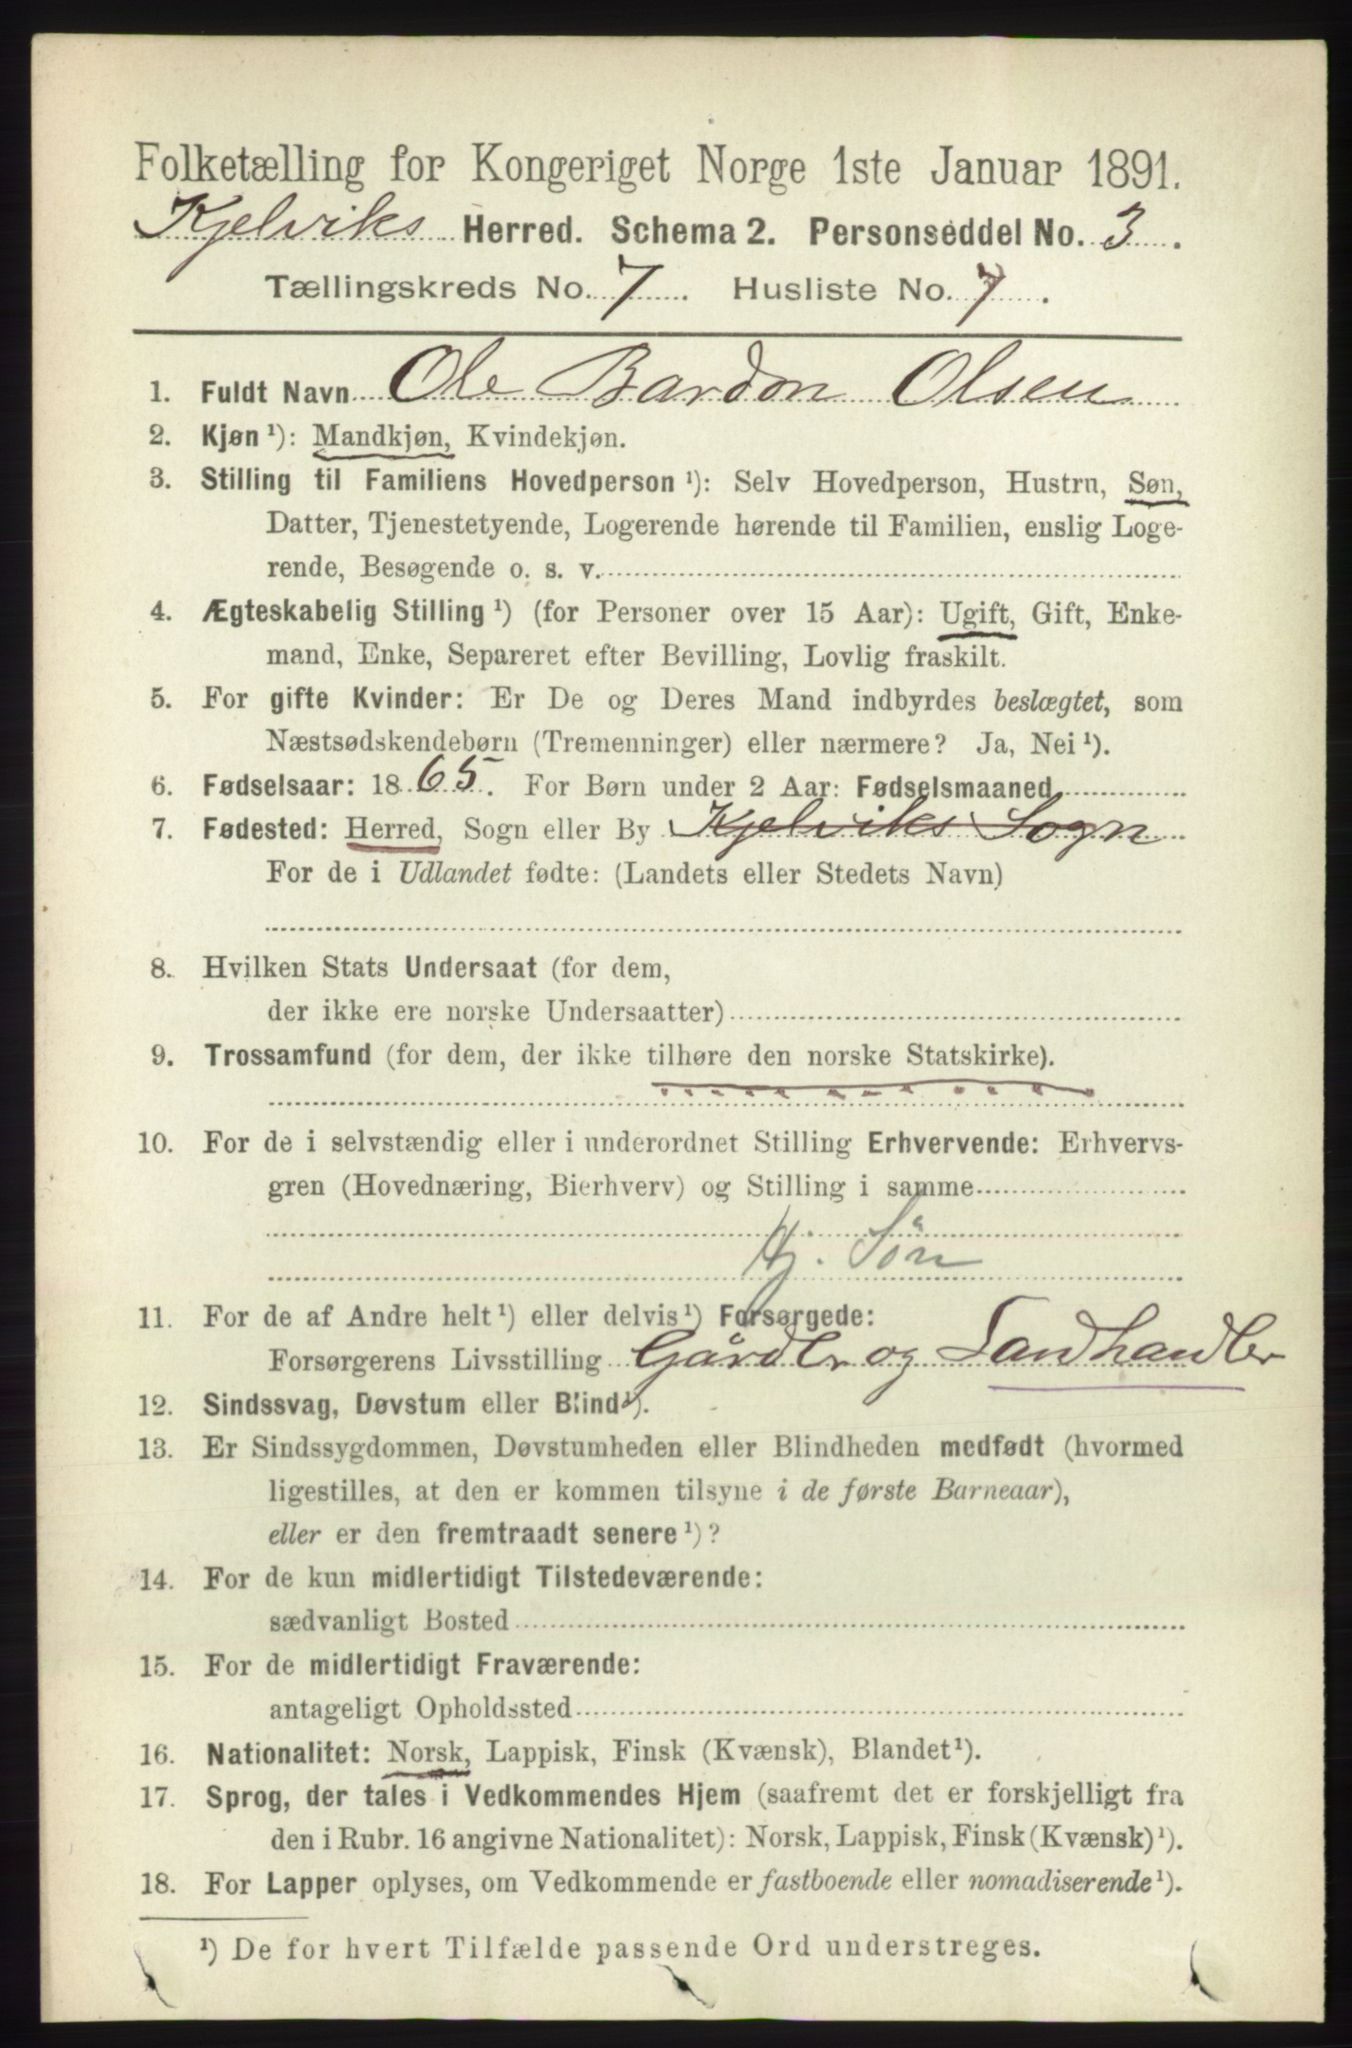 Folketælling for Kongeriget Norge 1ste Januar 1891.
Kjelviks Herred. Schema 2. Personseddel No. 3.
Tællingskreds No. 7. Husliste No. 7.
1. Fuldt Navn Ole Bardon Olsen
2. Kjøn ¹): Mandkjøn, Kvindekjøn.
3. Stilling til Familiens Hovedperson ¹): Selv Hovedperson, Hustru, Søn,
Datter, Tjenestetyende, Logerende hørende til Familien, enslig Loge-
rende, Besøgende o. s. v.
4. Ægteskabelig Stilling ¹) (for Personer over 15 Aar): Ugift, Gift, Enke-
mand, Enke, Separeret efter Bevilling, Lovlig fraskilt.
5. For gifte Kvinder: Er De og Deres Mand indbyrdes beslægtet, som
Næstsødskendebørn (Tremenninger) eller nærmere? Ja, Nei ¹).
6. Fødselsaar: 1865. For Børn under 2 Aar: Fødselsmaaned
7. Fødested: Herred, Sogn eller By Kjelviks Sogn
For de i Udlandet fødte: (Landets eller Stedets Navn)
8. Hvilken Stats Undersaat (for dem,
der ikke ere norske Undersaatter)
9. Trossamfund (for dem, der ikke tilhøre den norske Statskirke).
10. For de i selvstændig eller i underordnet Stilling Erhvervende: Erhvervs-
gren (Hovednæring, Bierhverv) og Stilling i samme
Hj. Søn
11. For de af Andre helt ¹) eller delvis ¹) Forsørgede:
Forsørgerens Livsstilling Gårdbr og Landhandler
12. Sindssvag, Døvstum eller Blind ¹).
13. Er Sindssygdommen, Døvstumheden eller Blindheden medfødt (hvormed
ligestilles, at den er kommen tilsyne i de første Barneaar),
eller er den fremtraadt senere ¹)?
14. For de kun midlertidigt Tilstedeværende:
sædvanligt Bosted
15. For de midlertidigt Fraværende:
antageligt Opholdssted
16. Nationalitet: Norsk, Lappisk, Finsk (Kvænsk), Blandet ¹).
17. Sprog, der tales i Vedkommendes Hjem (saafremt det er forskjelligt fra
den i Rubr. 16 angivne Nationalitet): Norsk, Lappisk, Finsk (Kvænsk) ¹).
18. For Lapper oplyses, om Vedkommende er fastboende eller nomadiserende ¹).
¹) De for hvert Tilfælde passende Ord understreges.